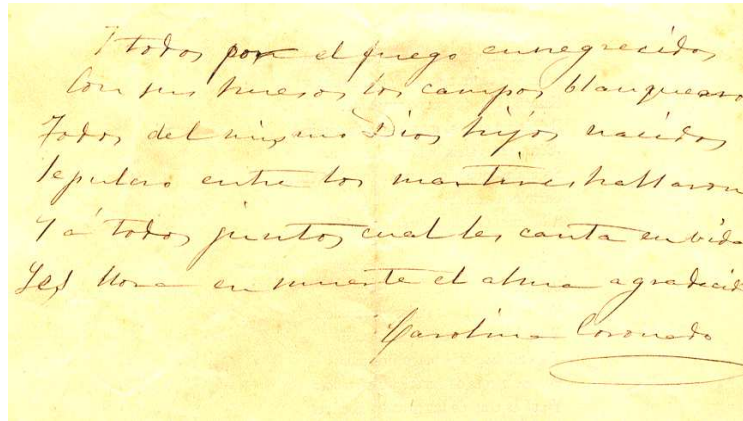 Y todos por el fuego ennegrecidos
Con sus huesos los campos blanquearon
Todos del mismo Dios hijos nacidos
Sepulcro entre los martires hallaron
Y á todos juntos cual les canta en vida
Les llora en muerte el alma agradecid
Carolina Coronado